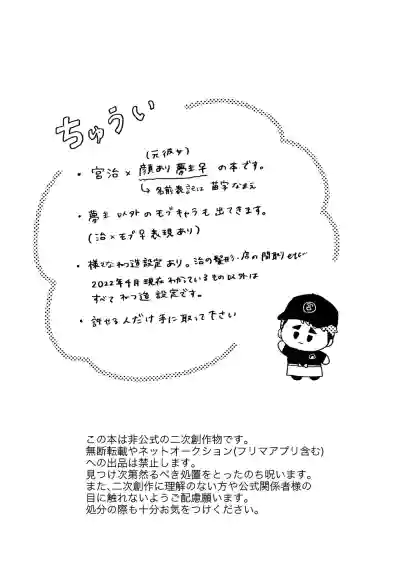 ちゅうい
(元彼女)
・宮治×顔あり夢主♀の本です。
↳名前表記は 苗字なまえ
・夢主以外のモブキャラも出てきます。
(治×モブ♀表現あり)
・様々なねつ造設定あり。治の髪形、店の間取りetc…
2022年4月現在わかっているもの以外は
すべてねつ造設定です。
・許せる人だけ手に取って下さい
この本は非公式の二次創作物です。
無断転載やネットオークション(フリマアプリ含む)
への出品は禁止します。
見つけ次第然るべき処置をとったのち呪います。
また、二次創作に理解のない方や公式関係者様の
目に触れないようご配慮願います。
処分の際も十分お気をつけください。